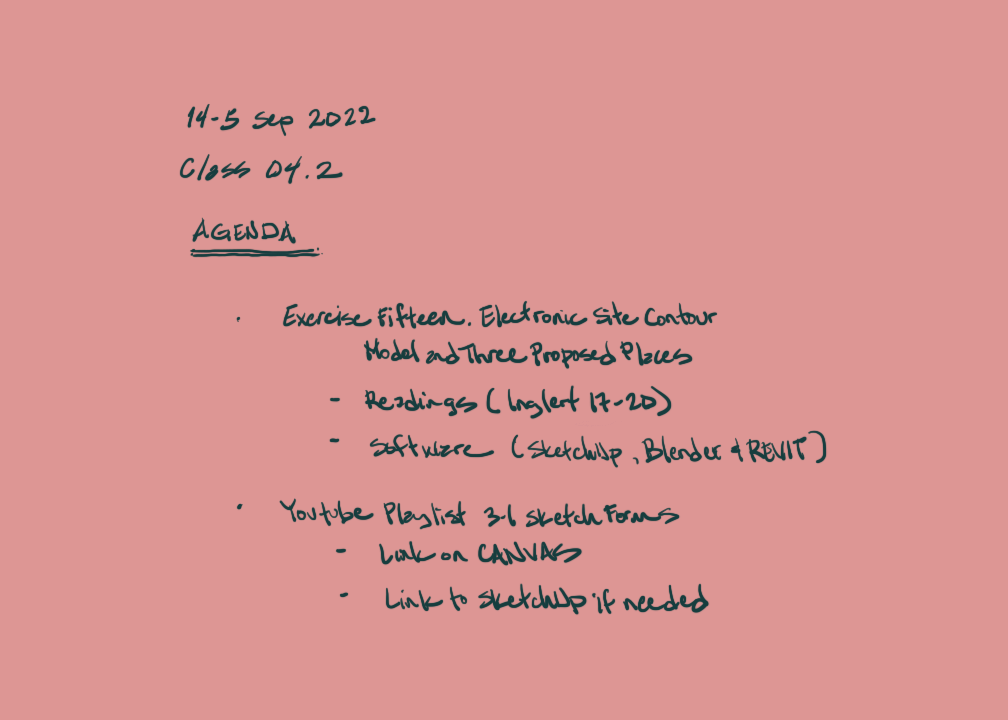 14-5 Sep 2022
Class 04.2
AGENDA
· Exercise Fifteen. Electronic Site Contour
Model and Three Proposed Places
- Readings (Inglert 17-20)
- Software (SketchUp, Blender & REVIT)
· Youtube Playlist 3-1 Sketch Forms
- Link on CANVAS
- Link to SketchUp if needed